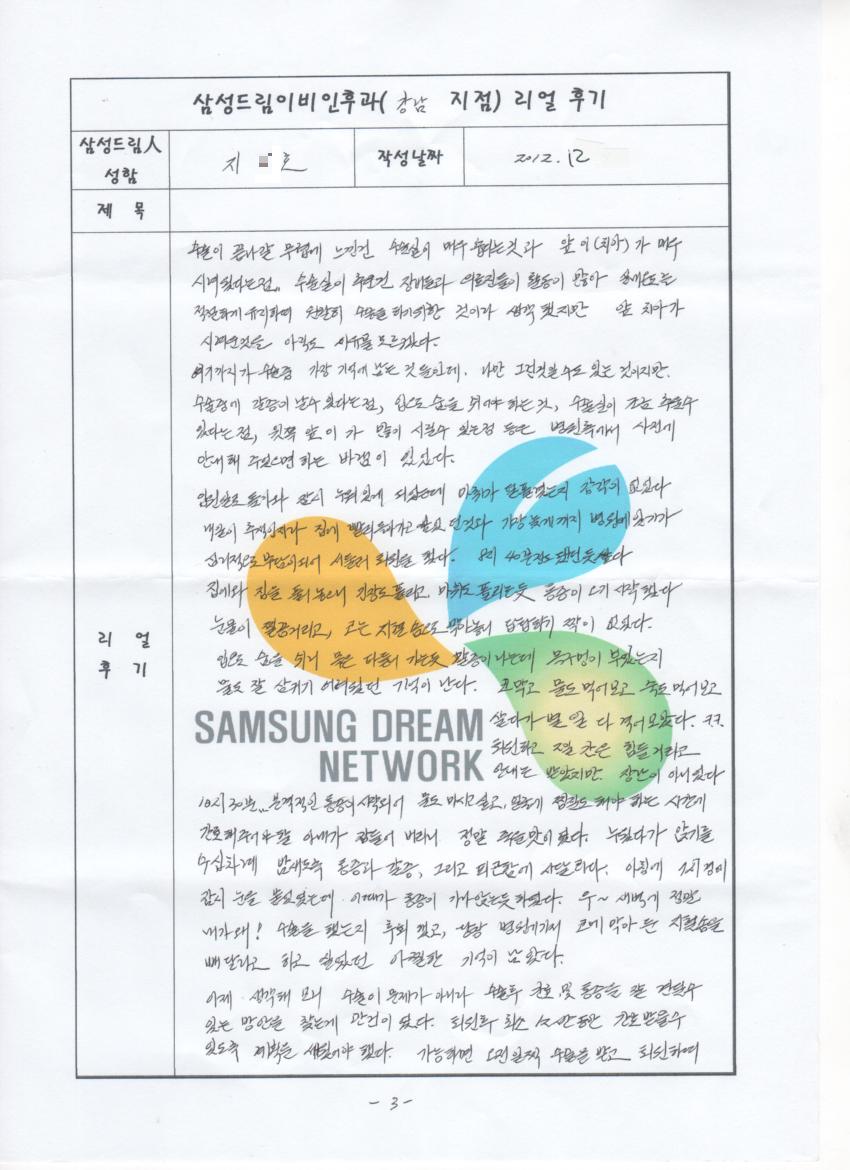 삼성드림이비인후과( 강남 지점) 리얼 후기
삼성드림人
성함
지 호
작성날짜
2012. 12
제 목
리 얼
후 기
수술이 끝나갈 무렵에 느낀건 수술실이 매우 춥다는것과 앞 이(치아)가 매우
시려웠다는점.. 수술실이 추운건 장비들과 의료진들의 활동이 많아 실내온도를
적절하게 유지하며 원활히 수술을 하기위한 것이라 생각했지만 앞 치아가
시려운것은 아직도 이유를 모르겠다.
여기까지가 수술중 가장 기억에 남는 것들인데. 나만 그런것일 수도 있는 것이지만.
수술중에 갈증이 날수 있다는점, 입으로 숨을 쉬어야 하는 것, 수술실이 간혹 추울수
있다는 점, 윗쪽 앞 이 가 많이 시릴수 있는점 등은 병원측에서 사전에
안내해 주었으면 하는 바램이 있었다.
입원실로 돌아와 잠시 누워있게 되었는데 마취가 덜풀렸는지 감각이 없었다
내일이 휴일인지라 집에 빨리 들어가고 싶었던것과 가장 늦게까지 병원에 있기가
심리적으로 부담이되어 서둘러 퇴원을 했다. 8시 40분정도 됐던듯 싶다
집에와 짐을 풀어 놓으니 긴장도 풀리고, 마취도 풀리는듯 통증이 오기 시작했다
눈물이 찔끔거리고, 코는 지혈솜으로 막아놓아 답답하기 짝이 없었다.
입으로 숨을 쉬니 목은 다 말라 가는듯 갈증이 나는데 목구멍이 부었는지
물도 잘 삼키기 어려웠던 기억이 난다. 코막고 물도 먹어보고 죽도 먹어보고
살다가 별 일 다 겪어 보았다. ㅋㅋ.
SAMSUNG DREAM
NETWORK
퇴원하고 몇일 간은 힘들거라고
안내는 받았지만 장난이 아니었다
10시 30분.. 본격적인 통증이 시작되어 물도 마시고 싶고, 얼굴에 찜질도 해야 하는 시간에
간호해주어야 할 아내가 잠들어 버리니 정말 죽을맛이였다. 누웠다가 앉기를
수십차례 밤새도록 통증과 갈증, 그리고 피곤함에 시달렸다. 아침에 7시경이
잠시 눈을 붙였었는데 이때가 통증이 가라앉는듯 하였다. 우~ 새벽에 정말
내가 왜! 수술을 했는지 후회했고, 당장 병원가가서 코에 막아 둔 지혈솜을
빼달라고 하고 싶었던 아찔한 기억이 남았다.
이제 생각해 보니 수술이 문제가 아니라 수술후 간호 및 통증을 잘 견딜수
있는 방안을 찾는게 관건이 였다. 퇴원후 최소 시간동안 간호받을수
있도록 계획을 세웠어야 했다. 가능하면 오전일찍 수술을 받고 퇴원하여
- 3 -